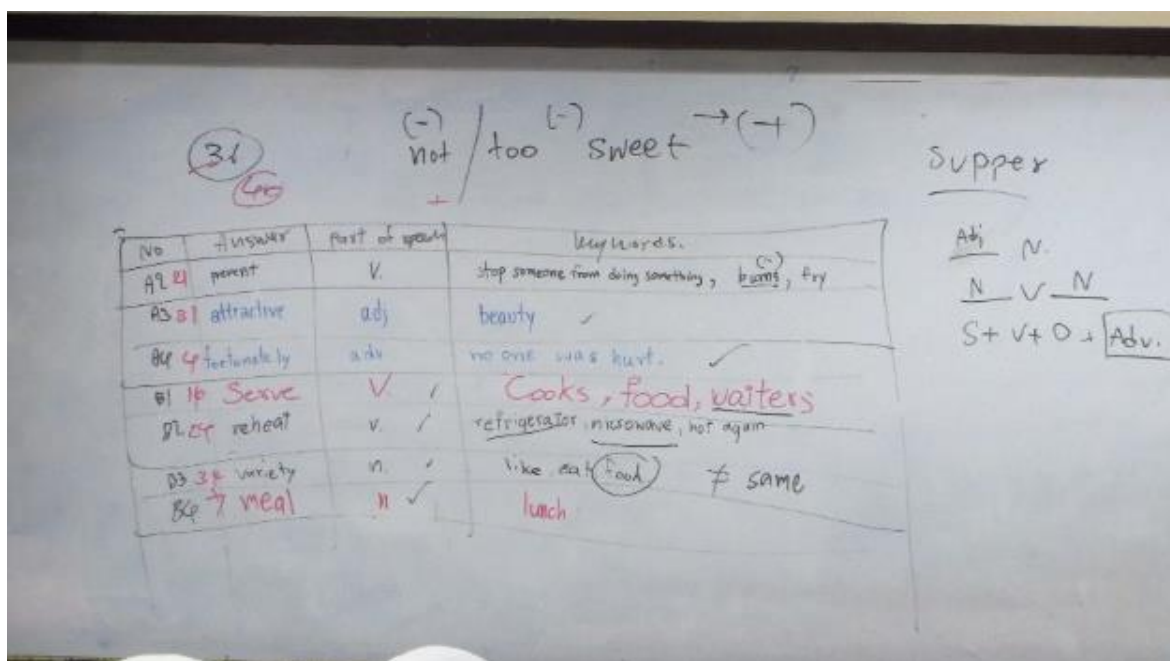 (-) (-)
31 not / too sweet → (+)
+
Supper
No Answer Part of speech keywords.
A2 prevent V. stop someone from doing something, burns, (-) try
A3 attractive adj beauty ✓
fortunately adv no one was hurt. ✓
B1 16 Serve V Cooks, food, waiters
B2 reheat v. refrigerator, microwave, hot again
B3 variety n. like eat food ≠ same
B4 7 meal n ✓ lunch
Adj N.
N V N
S+ V+ O + Adv.